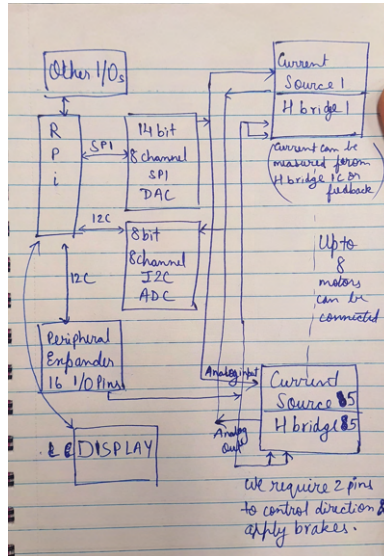 Other I/Os
R
P
i
SPI
14 bit
8 channel
SPI
DAC
I2C
8 bit
8 channel
I2C
ADC
I2C
Peripheral
Expander
16 I/O Pins
DISPLAY
Current
Source 1
H bridge 1
(Current can be
measured from
H bridge IC or
fudback)
Up to
8
motors
can be
connected
Analog input
Analog
Out
Current
Source 5
H bridge 5
We require 2 pins
to control direction &
apply brakes.